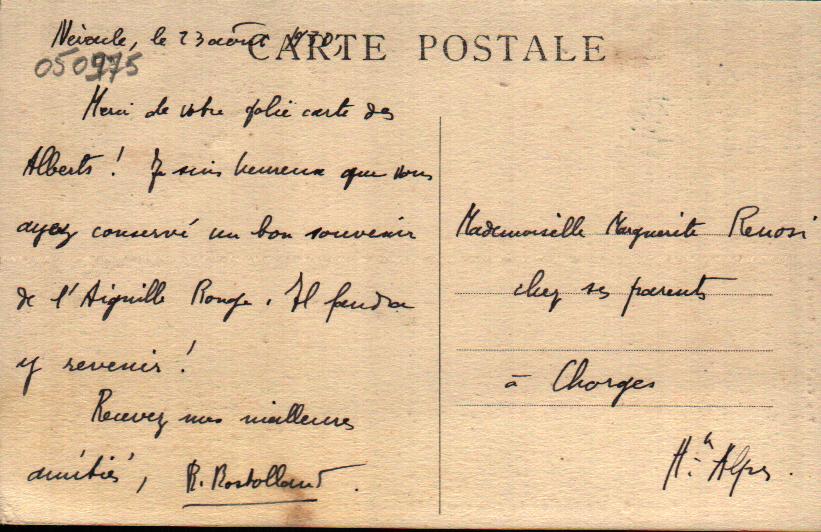 Névache, le 23 août 1930,
CARTE POSTALE
050975
Merci de votre jolie carte des
Alberts ! Je suis heureux que vous
ayez conservé un bon souvenir
de l'Aiguille Rouge. Il faudra
y revenir !
Recevez mes meilleures
amitiés, R. Rostolland.
Mademoiselle Marguerite Renosi
chez ses parents
à Chorges
H.tes Alpes.